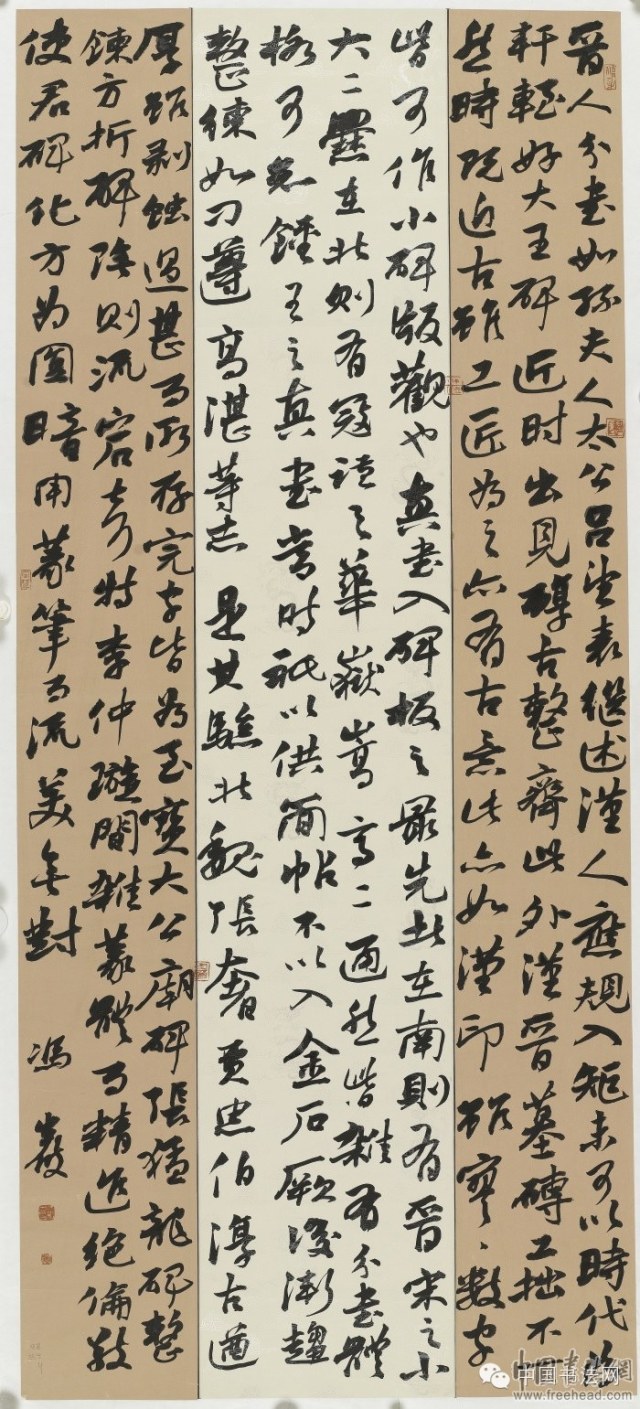 晋人分书如孙夫人太公吕望表继述汉人应规入矩未可以时代论
轩轾好大王碑近时出见醇古整齐此外汉晋墓砖工拙不
然时既近古虽工匠为之亦有古意此亦如汉印虽寥々数字
皆可作小碑版观也真书入碑板之最先者在南则有晋宋之小
大二爨在北则有寇谦之华岳嵩高二通然皆杂有分书体
格可知钟王之真书当时祇以供简帖不以入金石厥后渐趋
整练如刁遵高湛等志是其驗北魏张奢贾思伯淳古遒
厚虽剥蚀过甚而所存完字皆为至宝大公庙碑张猛龙碑整
錬方折碑阴则流宕奇特李仲璇间杂篆体而精迈绝伦敬
使君碑化方为圆暗用篆笔而流美无对 冯
中国书法网
www.freehead.com